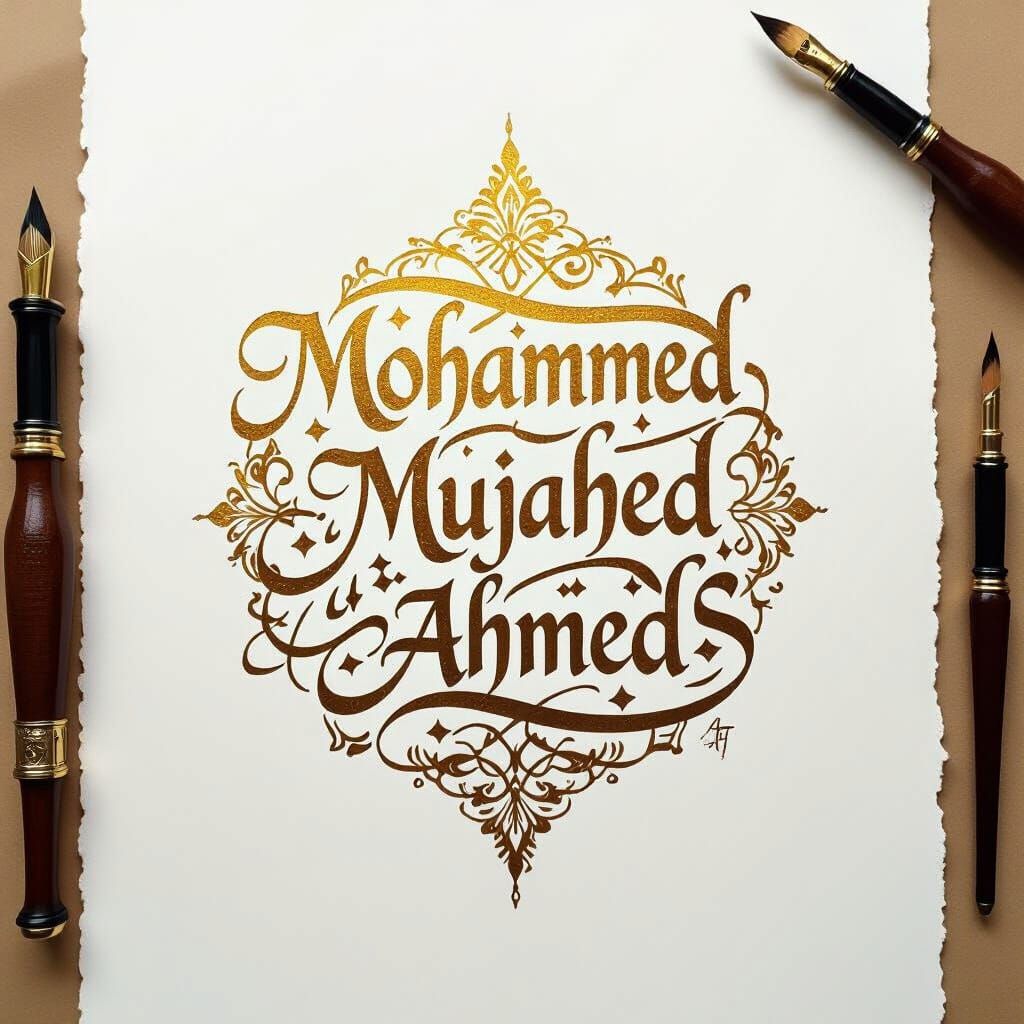 Mohammed
Mujahed
AhmedS